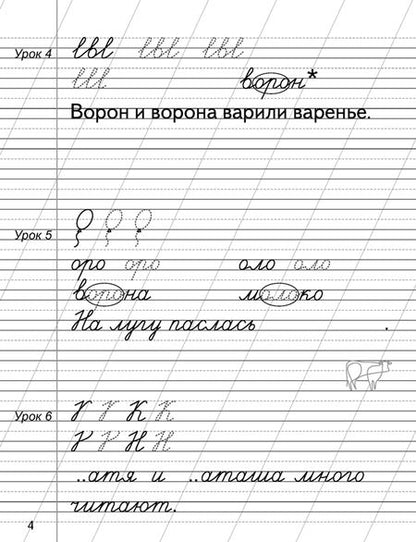 Урок 4 ևև ևև ևև
ш ворон*
Ворон и ворона варили варенье.
Урок 5
оро оро оло оло
ворона молоко
На лугу паслась .
Урок 6 К К
Н Н
..атя и ..аташа много
читают.
4